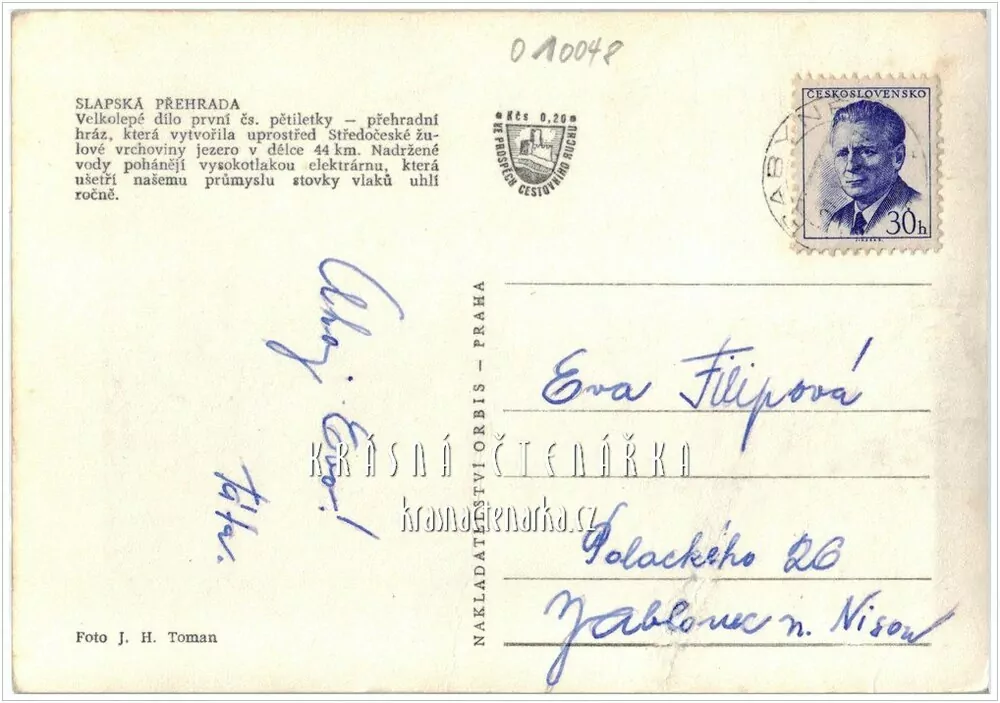 O 10048
SLAPSKÁ PŘEHRADA
Velkolepé dílo první čs. pětiletky — přehradní
hráz, která vytvořila uprostřed Středočeské žu-
lové vrchoviny jezero v délce 44 km. Nadržené
vody pohánějí vysokotlakou elektrárnu, která
ušetří našemu průmyslu stovky vlaků uhlí
ročně.
Kčs 0,20
VE PROSPĚCH CESTOVNÍHO RUCHU
ČESKOSLOVENSKO
30h
Ahoj Evo!
Táta.
NAKLADATELSTVÍ ORBIS — PRAHA
Eva Filipová
Palackého 26
Jablonec n. Nisou
KRÁSNÁ ČTENÁŘKA
krasnactenarka.cz
Foto J. H. Toman